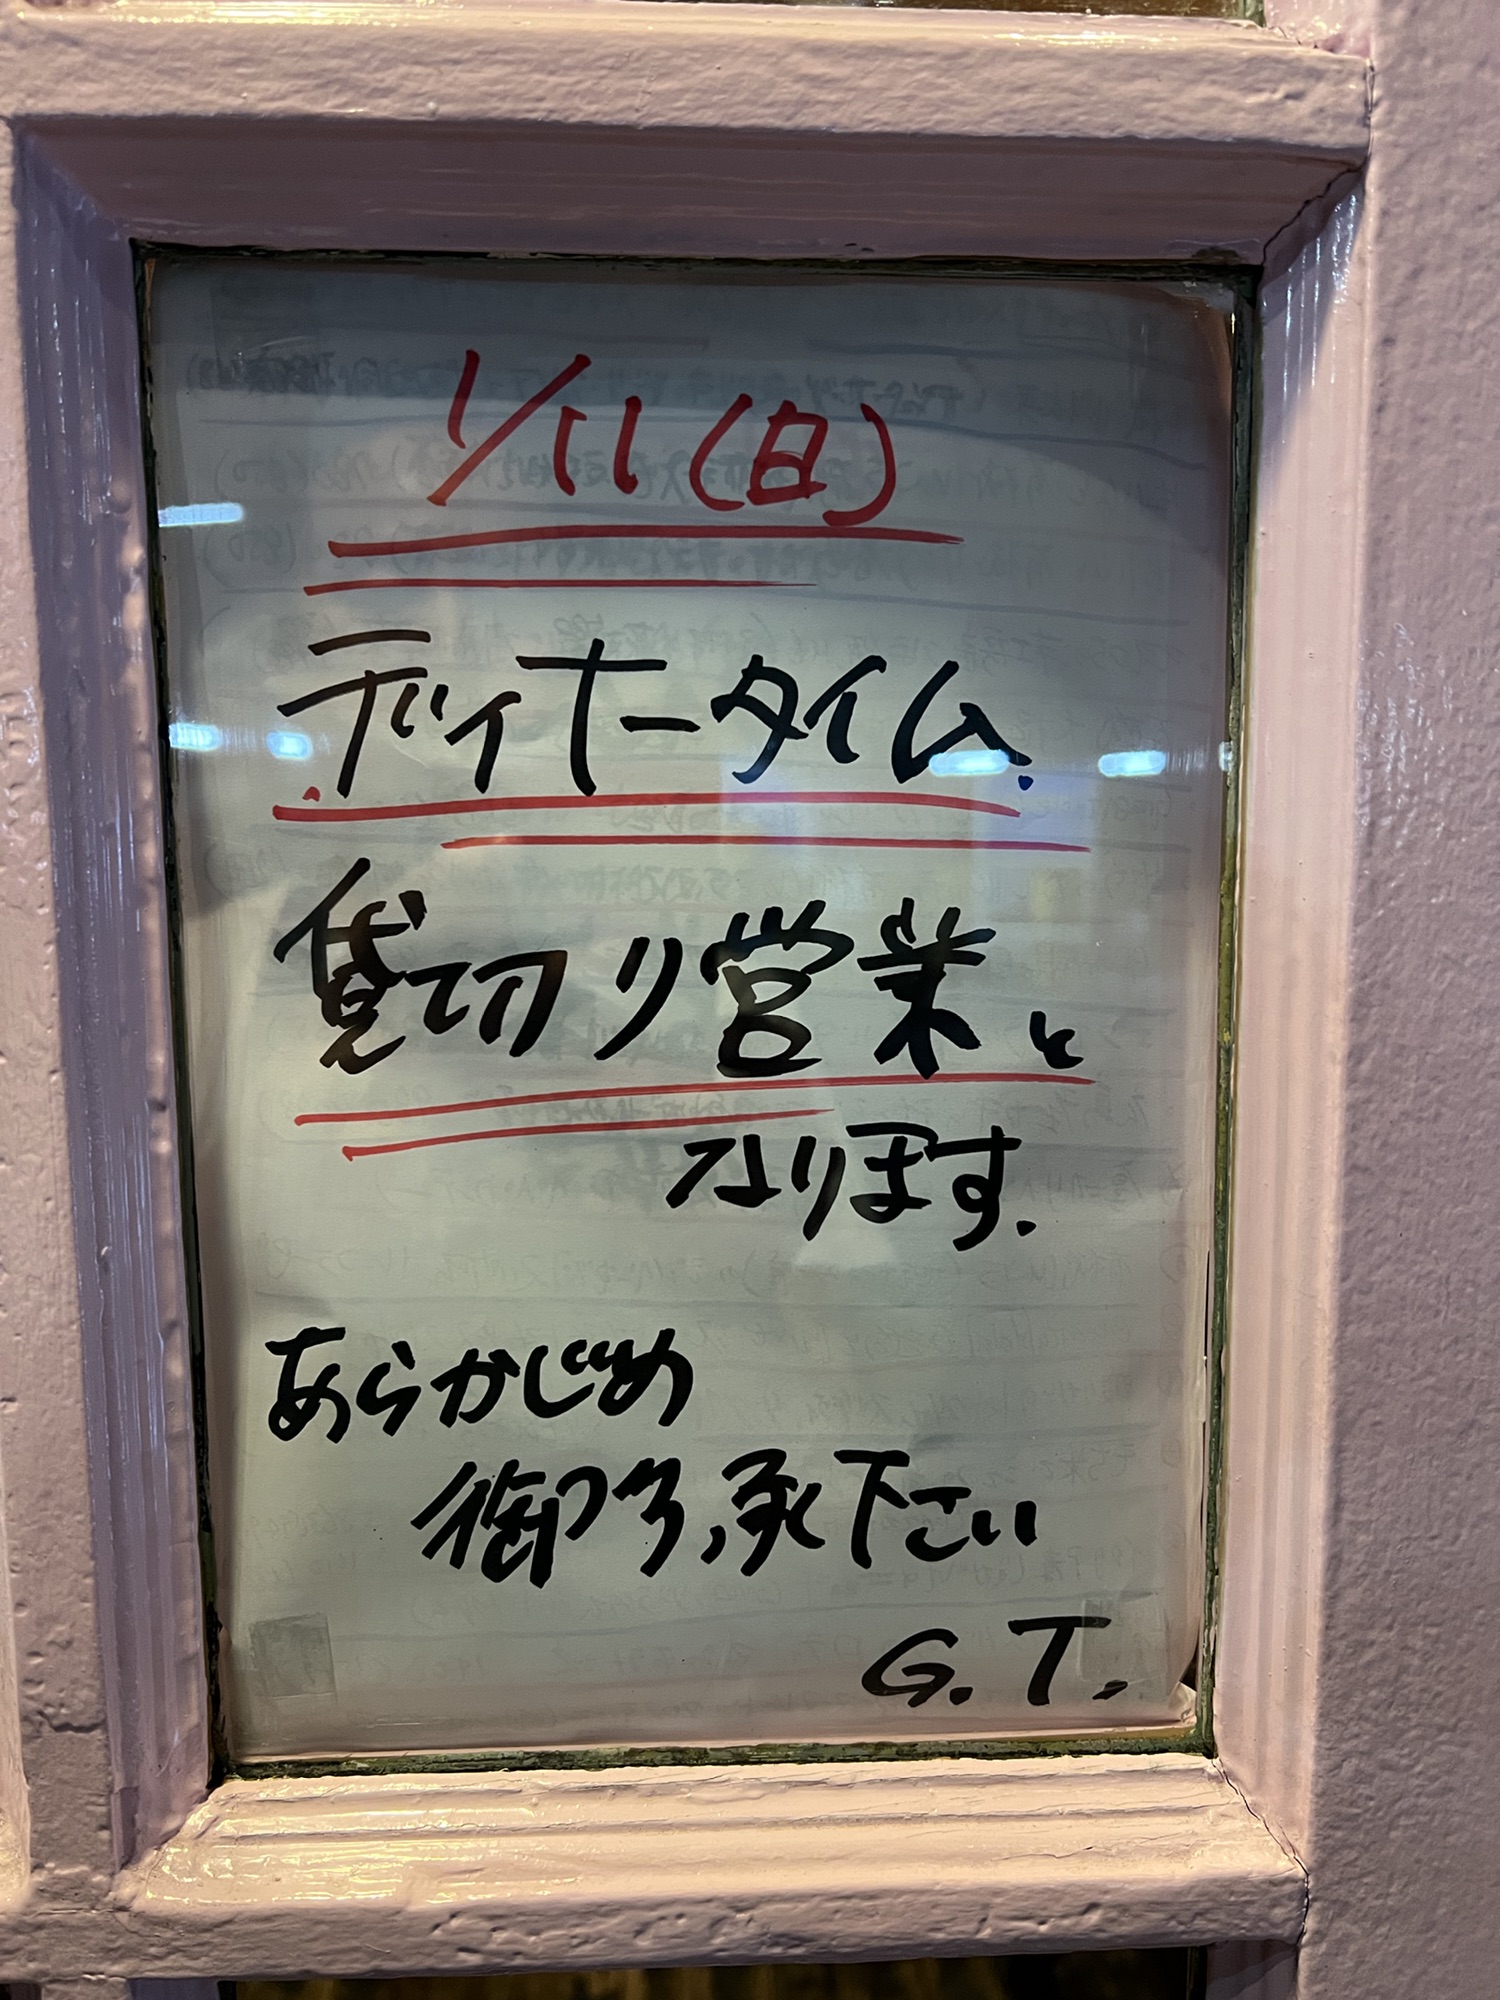 1/11(日)
ディナータイム
貸切り営業と
なります.
あらかじめ
御了承下さい
G.T.